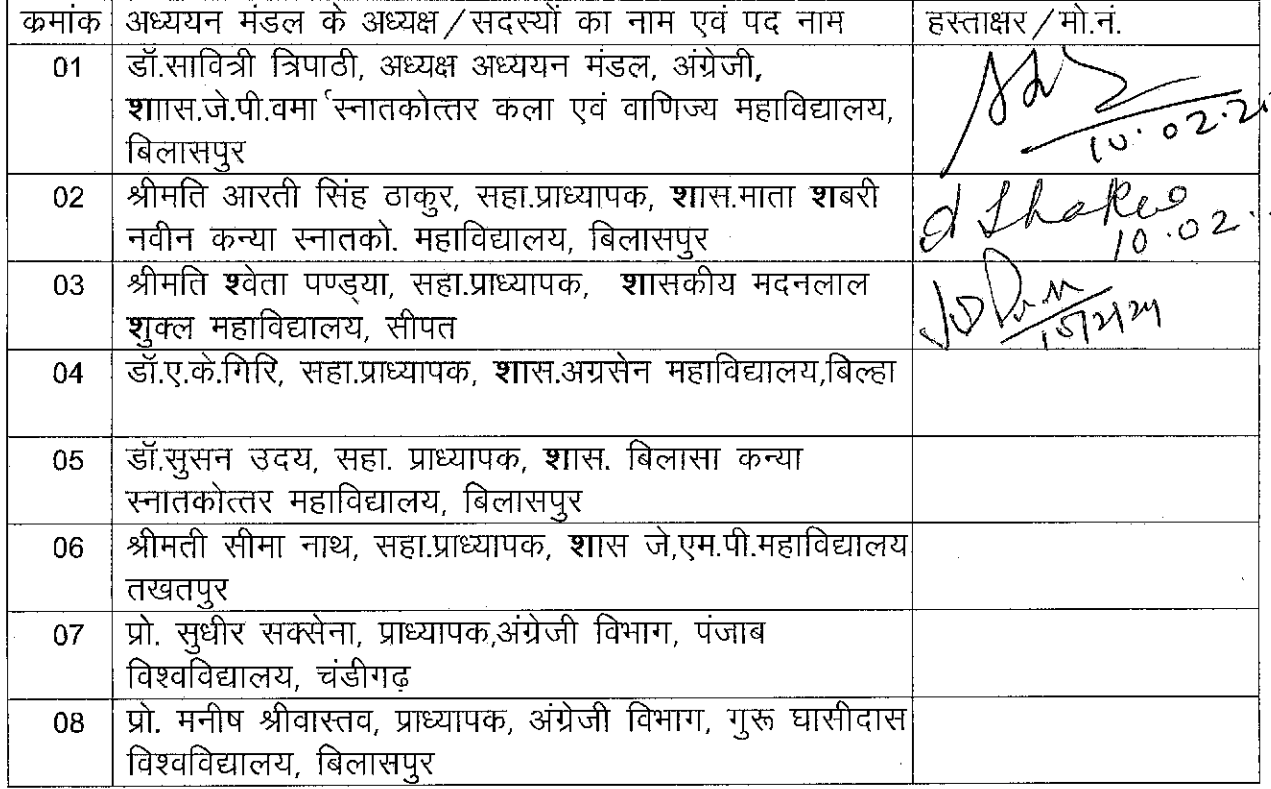 क्रमांक अध्ययन मंडल के अध्यक्ष/सदस्यों का नाम एवं पद नाम हस्ताक्षर/मो.नं.
01 डॉ.सावित्री त्रिपाठी, अध्यक्ष अध्ययन मंडल, अंग्रेजी,
शाास.जे.पी.वर्मा स्नातकोत्तर कला एवं वाणिज्य महाविद्यालय,
बिलासपुर
10.02.2
02 श्रीमति आरती सिंह ठाकुर, सहा.प्राध्यापक, शास.माता शबरी
नवीन कन्या स्नातको. महाविद्यालय, बिलासपुर
10.02.
03 श्रीमति श्वेता पण्ड्या, सहा.प्राध्यापक, शासकीय मदनलाल
शुक्ल महाविद्यालय, सीपत
04 डॉ.ए.के.गिरि, सहा.प्राध्यापक, शास.अग्रसेन महाविद्यालय,बिल्हा
05 डॉ.सुसन उदय, सहा. प्राध्यापक, शास. बिलासा कन्या
स्नातकोत्तर महाविद्यालय, बिलासपुर
06 श्रीमती सीमा नाथ, सहा.प्राध्यापक, शास जे,एम.पी.महाविद्यालय
तखतपुर
07 प्रो. सुधीर सक्सेना, प्राध्यापक,अंग्रेजी विभाग, पंजाब
विश्वविद्यालय, चंडीगढ़
08 प्रो. मनीष श्रीवास्तव, प्राध्यापक, अंग्रेजी विभाग, गुरू घासीदास
विश्वविद्यालय, बिलासपुर